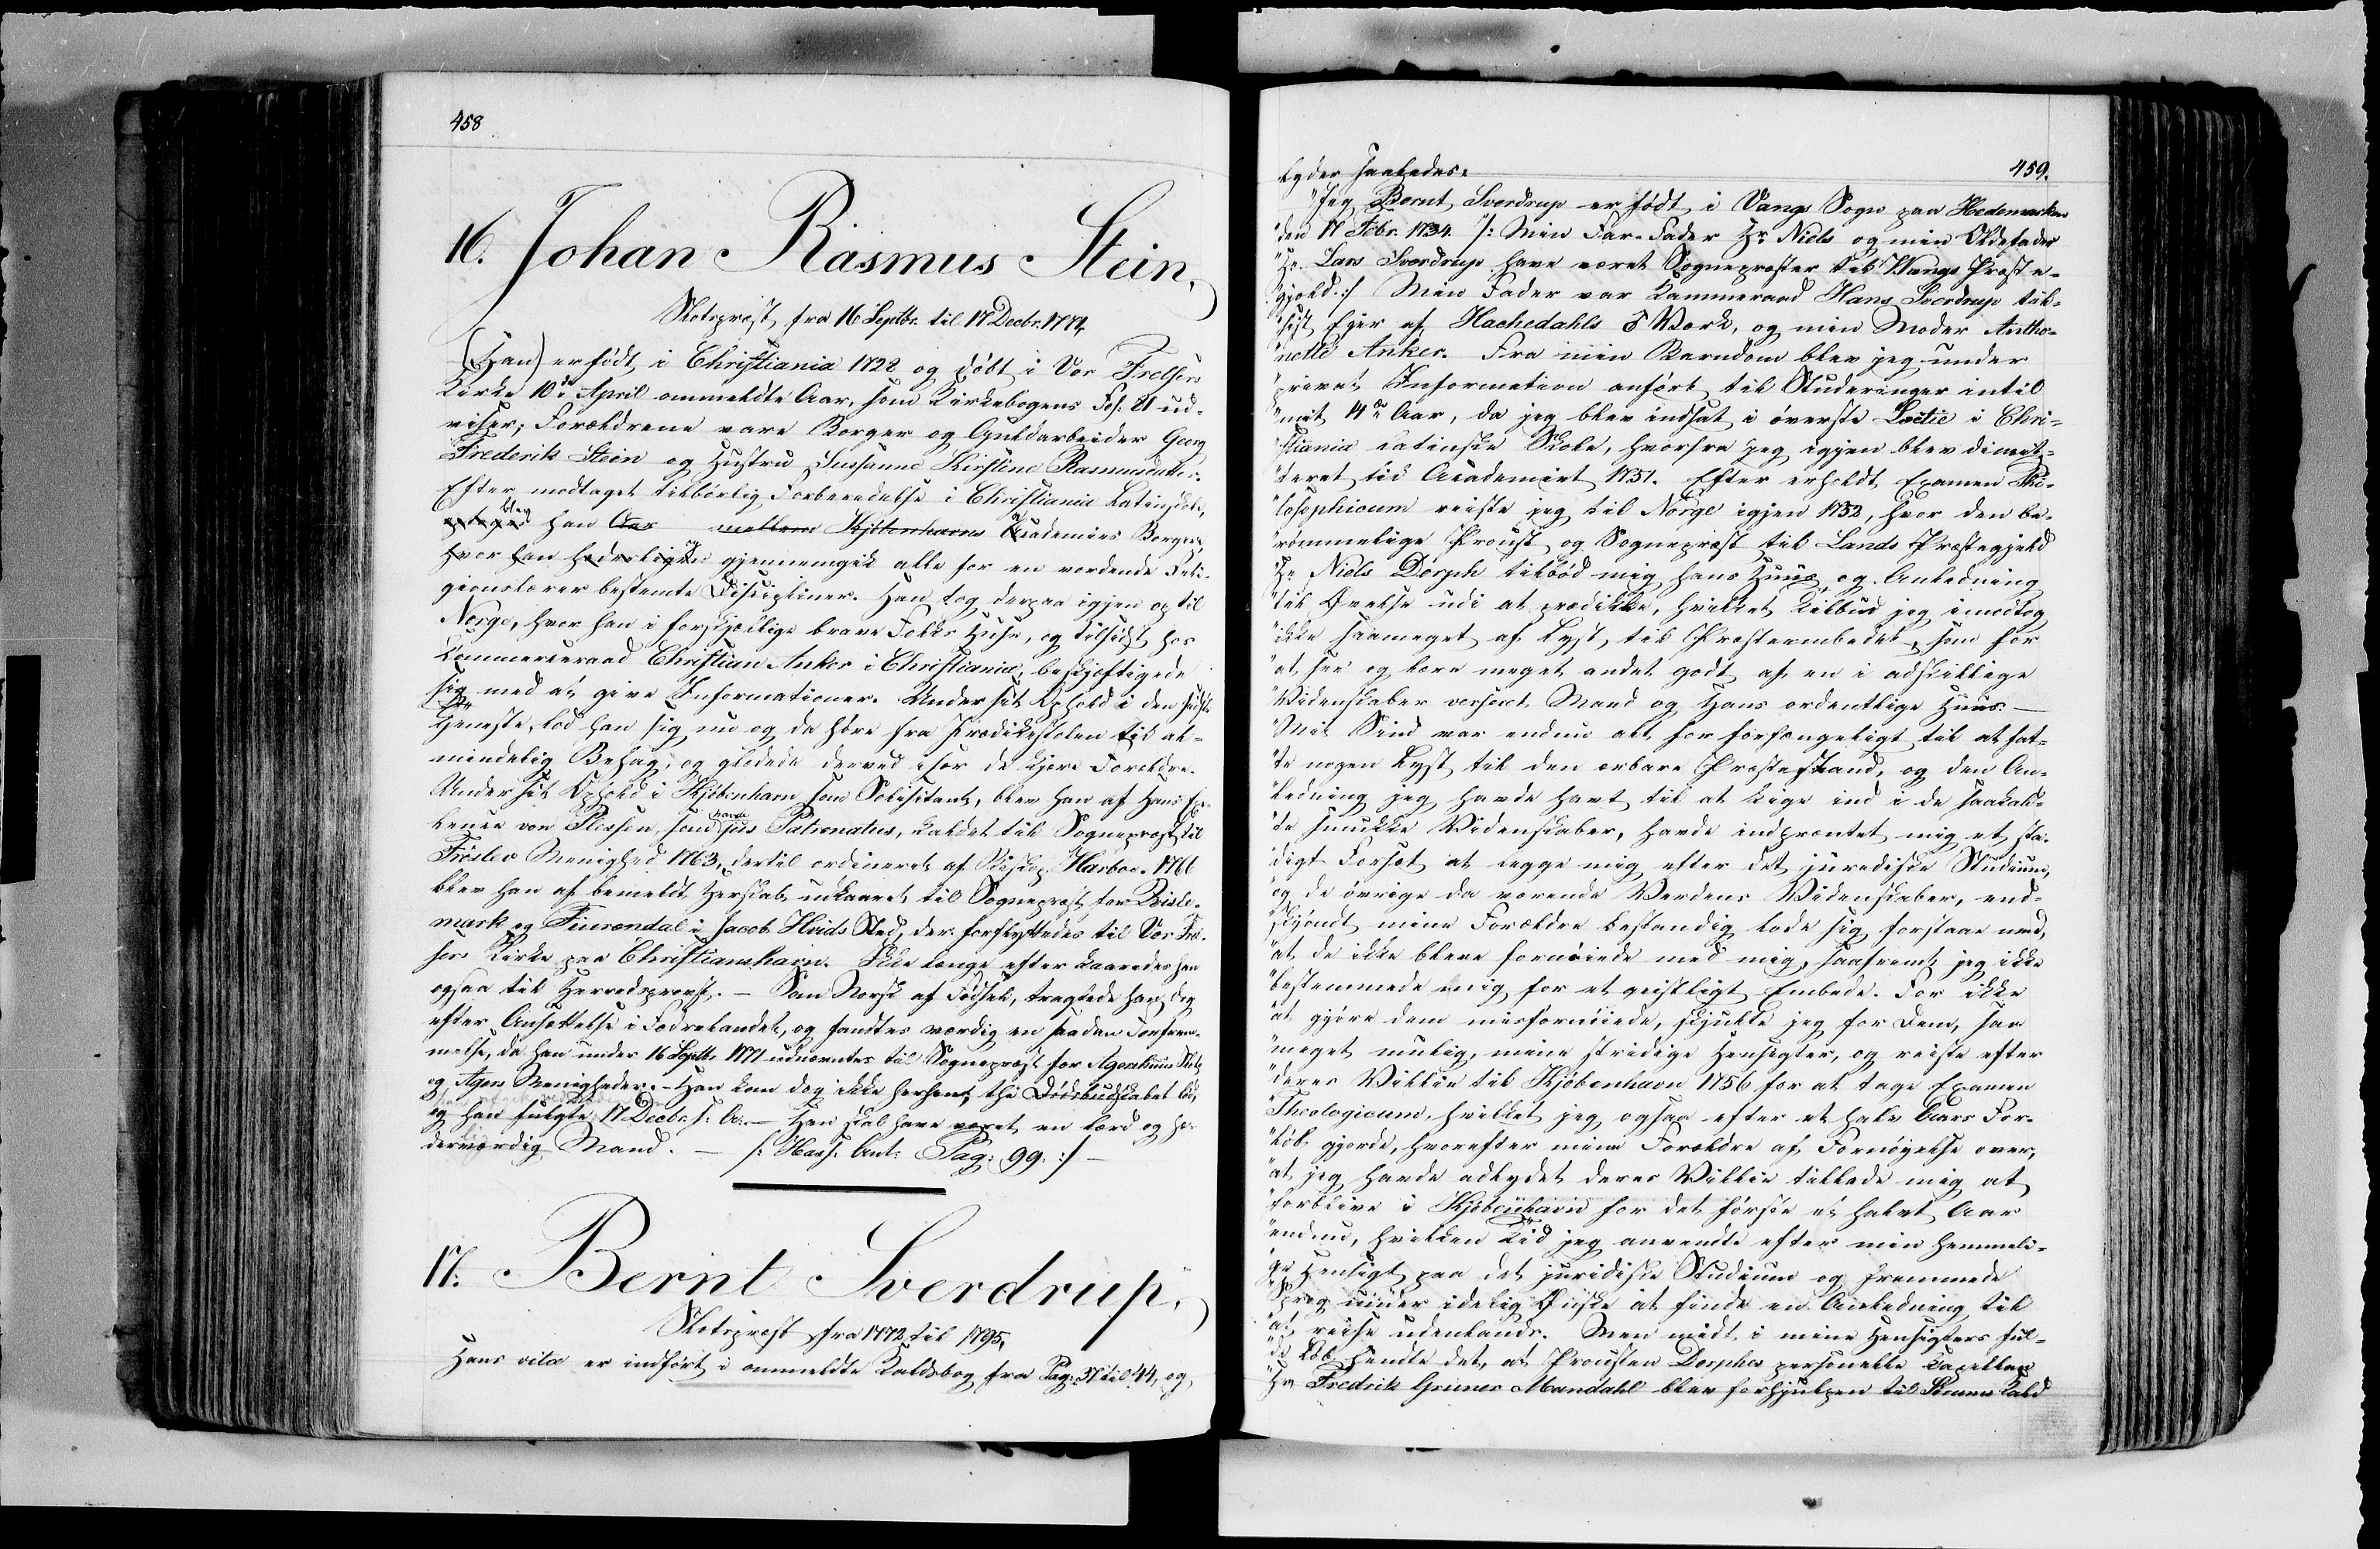 458
16. Johan Rasmus Stein,
Slotspræst fra 16 Septbr. til 17 Decbr. 1771,
(Han) er født i Christiania 1728 og döbt i Vor Frelsers
Kirke 10de April ommeldte Aar, som Kirkebogens Fol. 21 ud-
viser; Forældrene vare Borger og Guldarbeider Georg
Frederik Stein og Hustru Susanne Kirstine Rasmusdatter.
Efter modtaget tilbörlig Forberedelse i Christiania Latinskole,
blev han Aar mellem Kjöbenhavns Academies Borgere,
hvor han og gjennemgik alle for en vordende Reli-
gionslærer bestemte Discipliner. Han tog derpaa igjen op til
Norge, hvor han i forskjællige brave Folks Huse, og tilsidst hos
Commerceraad Christian Anker i Christiania, beskjæftigede
sig med at give Informationer. Under sit Ophold i den sidste
Tjeneste, lod han sig nu og da höre fra Prædikestolen til al-
mindelig Behag, og glædede derved især de kjære Forældre.
Under sit Ophold i Kjöbenhavn som Solicitant, blev han af Hans Ex-
lence von Plessen, som havde jus Patronatus, kaldet til Sognepræst til
Fröslev Menighed 1763, dertil ordineret af Biskop Harboe. 1766
blev han af bemeldte Herskab udkaaret til Sognepræst for Qvisle-
mark og Fuirendal i Jacob Hvids Sted, der forflyttedes til Vor Frel-
sers Kirke paa Christianshavn. Ikke længe efter kaaredes han
ogsaa til Herredsprovst. — Som Norsk af Födsel, tragtede han dog
efter Ansættelse i Fædrelandet, og fandtes værdig en saadan Forfrem-
melse, da han under 16 Septbr 1771 udnævntes til Sognepræst for Agershuus Slots
og Agers Menigheder. – Han kom dog ikke herhen, thi Dödsbudskabet löd,
og han fulgte 17 Decbr. s: A:. — Han skal have været en lærd og hæ-
derværdig Mand. — /: Hass. Ant: Pag: 99. :/ —
17. Bernt Sverdrup,
Slotspræst fra 1772 til 1795,
Hans vita er indfört i ommeldte Kaldsbog fra Pag: 37 til 44, og
459.
lyder saaledes:
"Jeg Bernt Sverdrup er födt i Vangs Sogn paa Hedemarken
"den 17 Febr. 1734. /: Min Far-Fader Hr Niels og min Oldefader
"Hr. Lars Sverdrup have været Sognepræster til Wangs Præste-
"gjæld.:/ Min Fader var Kammeraad Hans Sverdrup til-
"sidst Ejer af Hachedahls Værk, og min Moder Antho-
"nette Anker. Fra min Barndom blev jeg under
"privat Information anfört til Studeringer intil
"mit 14de Aar, da jeg blev indsat i överste Lectie i Chri-
"stiania latinske Skole, hvorfra jeg igjen blev dimit-
"teret til Academiet 1751. Efter erholdt Examen Phi-
"losophicum reiste jeg til Norge igjen 1752, hvor den be-
"römmelige Provst og Sognepræst til Lands Præstegjeld
"Hr Niels Dorph tilböd mig hans Huus og Anledning
"til Övelse udi at prædikke, hvilket Tilbud jeg imodtog
"ikke saameget af Lyst til Præsteembedet, som for
"at see og lære meget andet godt af en i adskillige
"Videnskaber verseret Mand og Hans ordentlige Huus. —
"Mit Sind var endnu alt for forfængeligt til at fat-
"te nogen Lyst til den ærbare Præstestand, og den An-
"ledning jeg havde havt til at kige ind i de saakald-
"te smukke Videnskaber, havde indprentet mig et sta-
"digt Forsæt at lægge mig efter det juridiske Studium,
"og de övrige da værende Verdens Videnskaber, end-
"skjöndt mine Forældre bestandig lode sig forstaae med,
"at de ikke bleve fornöiede med mig, saafremt jeg ikke
"bestemmede mig for et geistligt Embede. For ikke
"at gjöre dem misfornöiede, skjulte jeg for Dem, saa
"meget mulig, mine stridige Hensigter, og reiste efter
"deres Villie til Kjöbenhavn 1756 for at tage Examen
"Theologicum, hvilket jeg ogsaa efter et halv Aars For-
"löb gjorde, hvorefter mine Forældre af Fornöjelse over,
"at jeg havde adlydet deres Villie tillode mig at
"forblive i Kjöbenhavn for det förste et halvt Aar
"endnu, hvilken Tid jeg anvendte efter min hemmeli-
"ge Hensigt paa det juridiske Studium og fremmede
"Sprog under idelig Önske at finde en Anledning til
"at reise udenlands. Men midt i mine Hensigters ful-
"de Löb hændte det, at Provsten Dorphs personelle Capellan
"Hr Fredrik Gruner Mandahl blev forhjulpen til Kald